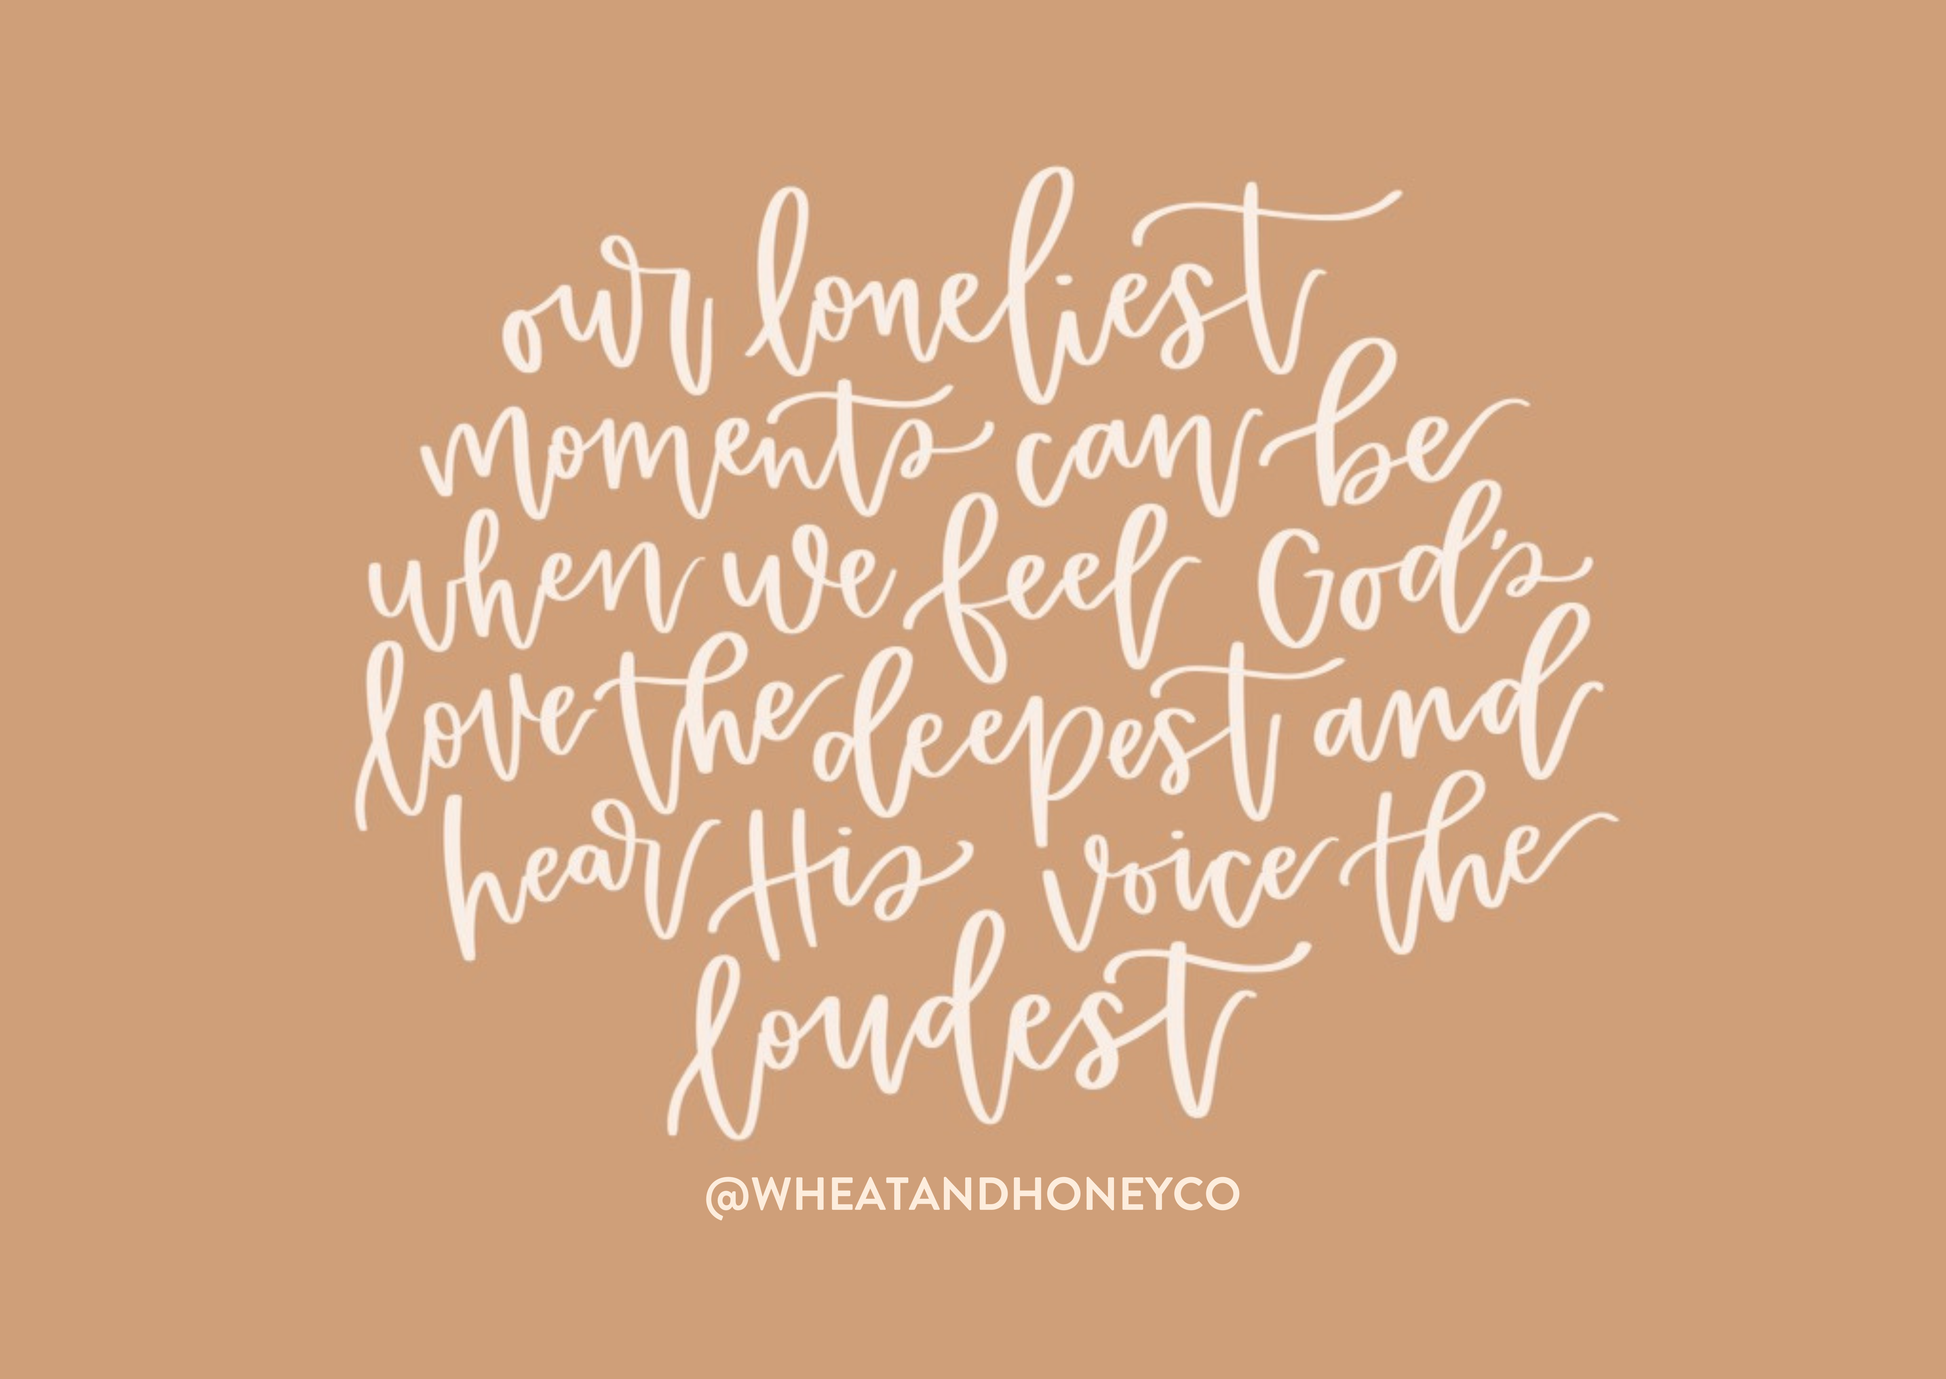 our loneliest
moments can be
when we feel God's
love the deepest and
hear His voice the
loudest
@WHEATANDHONEYCO